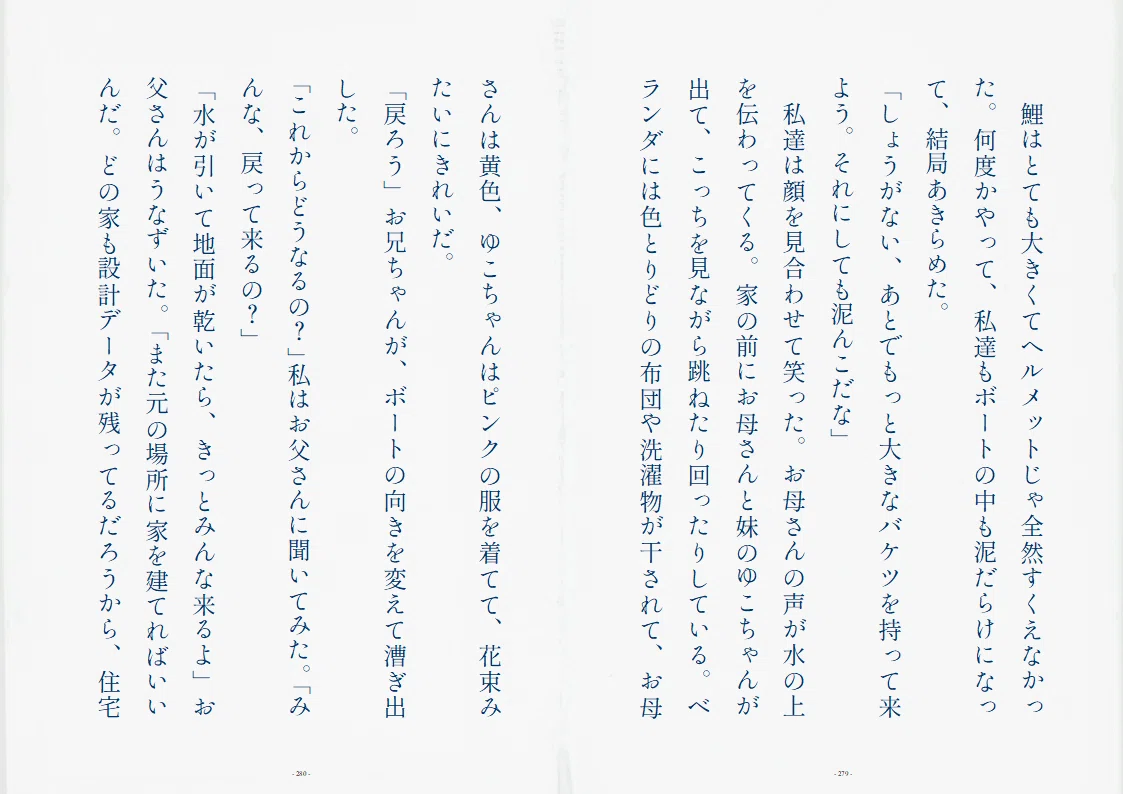 鯉はとても大きくてヘルメットじゃ全然すくえなかっ
た。何度かやって、私達もボートの中も泥だらけになっ
て、結局あきらめた。
「しょうがない、あとでもっと大きなバケツを持って来
よう。それにしても泥んこだな」
私達は顔を見合わせて笑った。お母さんの声が水の上
を伝わってくる。家の前にお母さんと妹のゆこちゃんが
出て、こっちを見ながら跳ねたり回ったりしている。ベ
ランダには色とりどりの布団や洗濯物が干されて、お母
- 279 -
さんは黄色、ゆこちゃんはピンクの服を着てて、花束み
たいにきれいだ。
「戻ろう」お兄ちゃんが、ボートの向きを変えて漕ぎ出
した。
「これからどうなるの？」私はお父さんに聞いてみた。「み
んな、戻って来るの？」
「水が引いて地面が乾いたら、きっとみんな来るよ」お
父さんはうなずいた。「また元の場所に家を建てればいい
んだ。どの家も設計データが残ってるだろうから、住宅
- 280 -